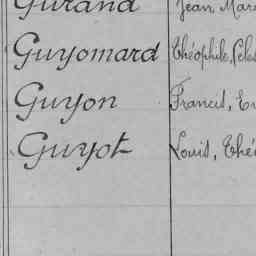 Gurand Jean, Mar
Guyomard Théophile, Céles
Guyon Francis, E
Guyot Louis, Thé